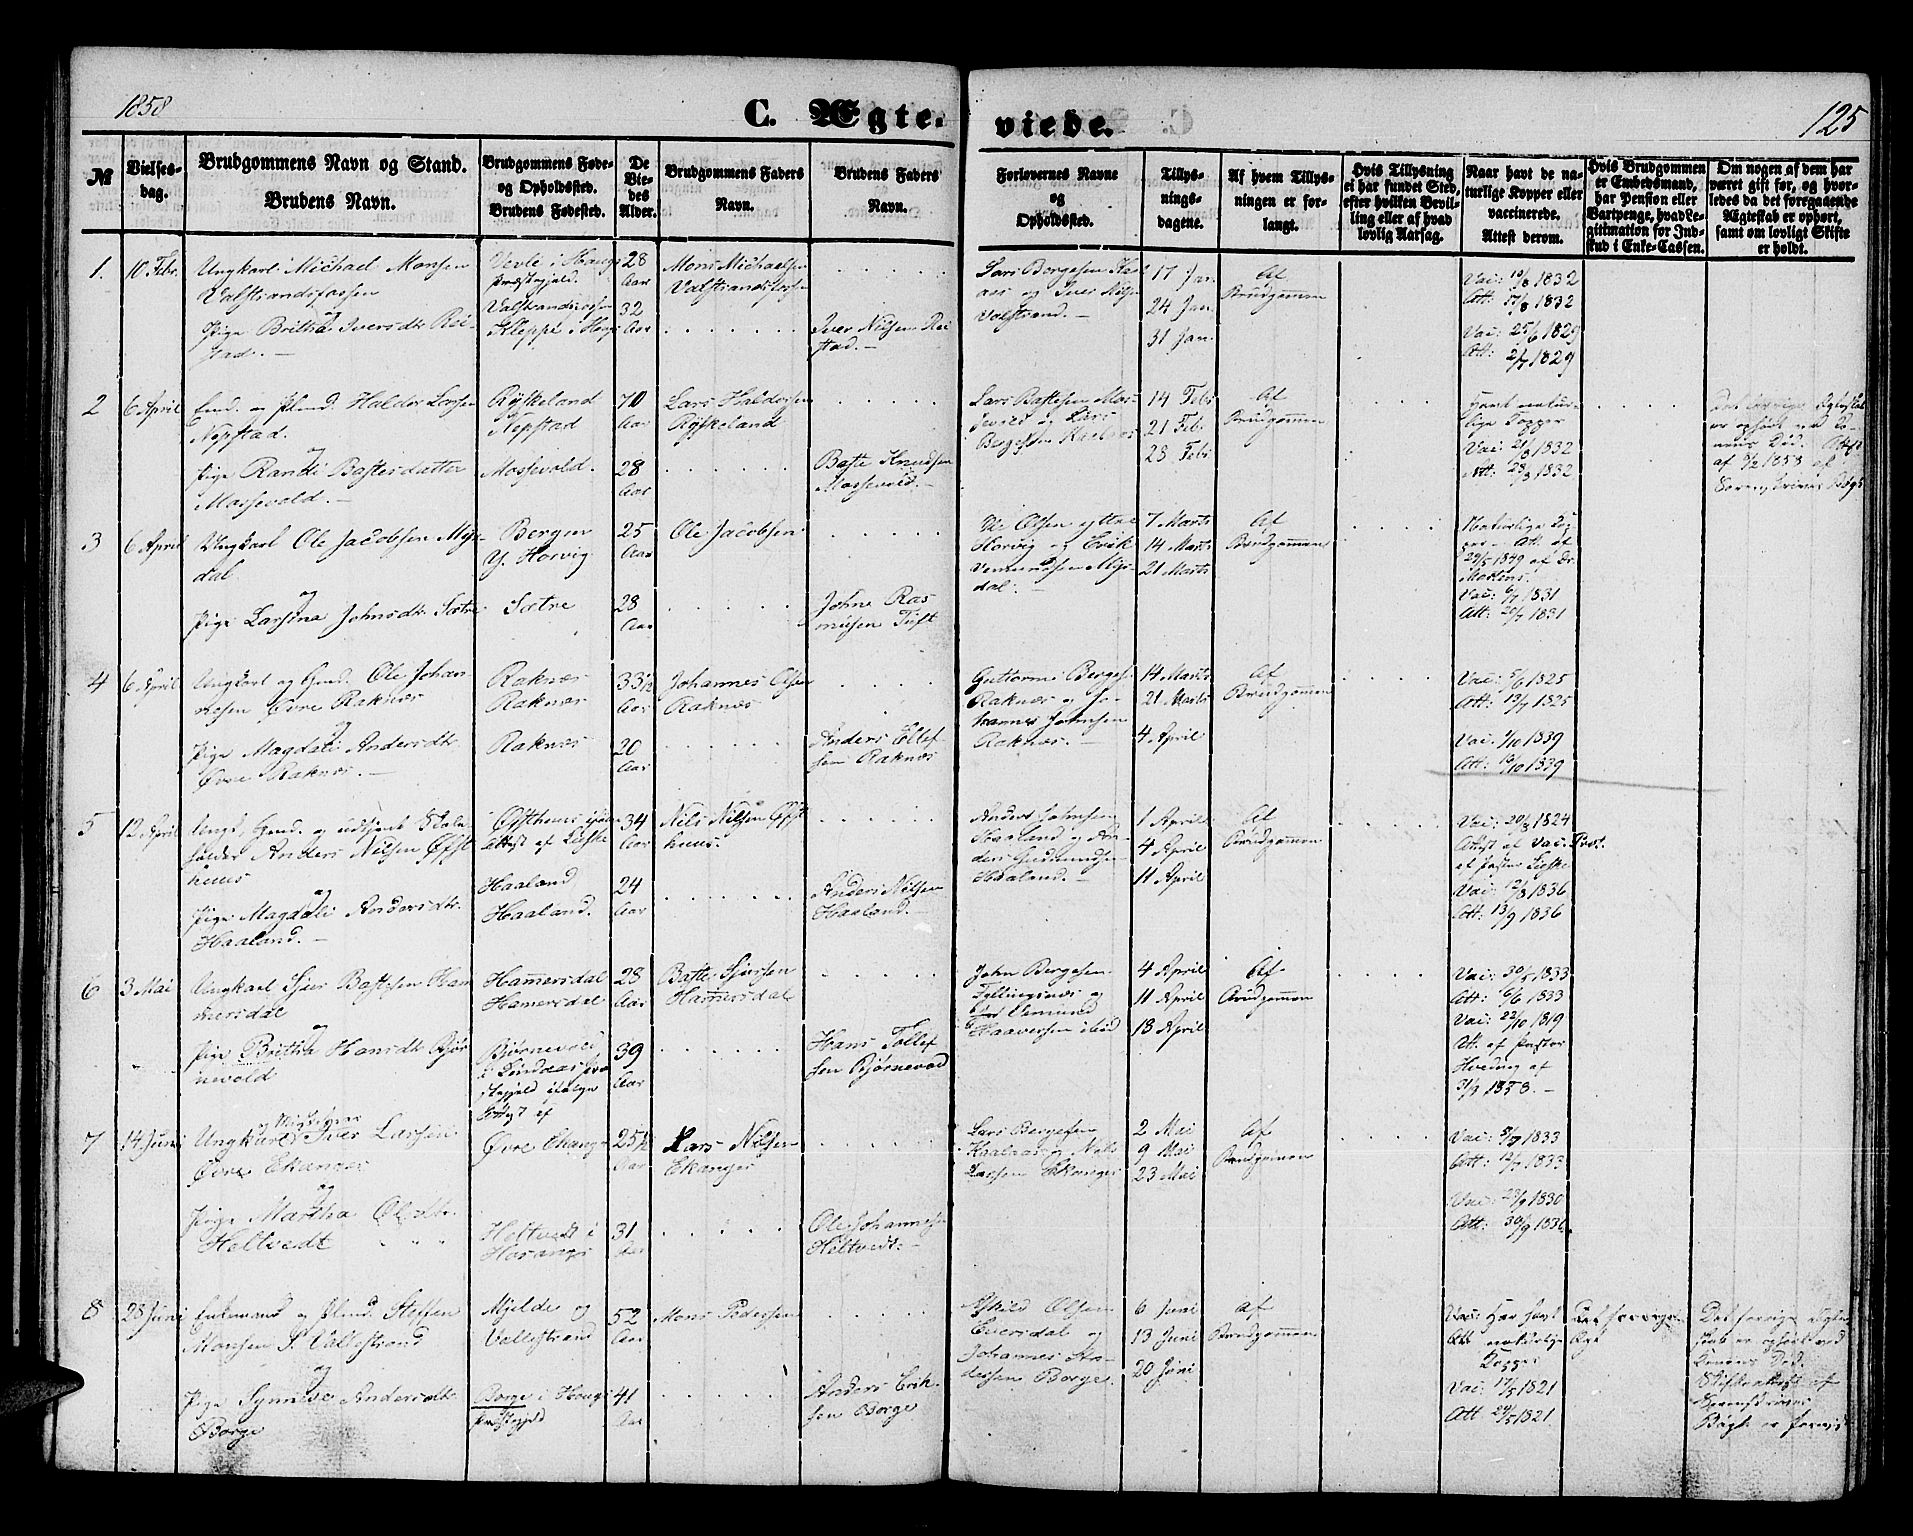 1858
C. Ægte-
viede.
125
№
Vielses-
dag.
Brudgommens Navn og Stand.
Brudens Navn.
Brudgommens Føde-
og Opholdssted.
Brudens Fødested.
De
Vie-
des
Alder.
Brudgommens Faders
Navn.
Brudens Faders
Navn.
Forlovernes Navne
og
Opholdssted.
Tillys-
nings-
dagene.
Af hvem Tillys-
ningen er for-
langt.
Hvis Tillysning
ei har fundet Sted,
efter hvilken Bevil-
ling eller af hvad
lovlig Aarsag.
Naar havt de na-
turlige Kopper eller
vaccinerede.
Attest derom.
Hvis Brudgommen
er Embedsmand,
har Pension eller
Vartpenge, hvad Le-
gittmation for Ind-
skud i Enke-Cassen.
Om nogen af dem har
været gift før, og hvor-
ledes da det foregaaende
Ægteskab er ophørt,
samt om lovligt Skifte
er holdt.
1.
10 Febr.
Ungkarl Michael Monsen
Valstrandsfossen
og
Pige Britha Iversdtr Rei-
stad.
Vevle i Hougs
Præstegjeld.
Kleppe i Hougs
28
Aar
32
Aar
Mons Michaelsen
Valstrandsfossen
Iver Nilsen Rei
stad.
Lars Borgesen
og Iver Nilsen
Valstrand.
17 Jan.
24 Jan.
31 Jan.
Af
Brudgommen
Vac: 10/8 1832
Att: 17/8 1832
Vac: 25/6 1829
Att: 2/7 1829
2
6 April
Halder Larsen
Nepstad.
og
Pige Randi Bastesdatter
Massevold.
Ryskeland
Nepstad
Mossevold.
70
Aar
28
Aar
Lars Haldersen
Ryskeland
Baste Knudsen
Massevold.
Lars Bastesen Mas-
sevold og Lars
Bergesen
14 Febr
21 Feb.
28 Febr
Af
Brudgommen
Havt natur-
lige Kopper
Vac: 21/8 1832
Att: 28/8 1832
er ophørt ved Ko-
nens Død.
af 9/2 1858 af
Sorenskriver Bøgh
3
6 April
Ungkarl Ole Jacobsen Mys-
dal
og
Pige Larsina Johnsdtr Sætre
Bergen
Y. Horvig
Sætre
25
Aar
28
Aar
Ole Jacobsen
Johne Ras
musen Tuft
Ole Olsen yttre
Horvig og Erik
Mys-
dal.
7 Marts
14 Marts
21 Marts
Af
Brudgommen
Naturlige Kop
per Att. af
29/5 1849 af Dr
Martens.
Vac: 6/7 1831
Att: 20/7 1831
4
6 April
Ungkarl og Gmd. Ole Johan
nesen Øvre Raknæs
og
Pige Magdali Andersdtr.
Øvre Raknæs.
Raknæs
Raknæs
Raknæs
33½
Aar
20
Aar
Johannes Olsen
Raknæs
Anders Ellef
sen Raknæs
Guttorm Berges.
Raknæs og Jo-
hannes Johnsen
Raknæs.
14 Marts
21 Marts
4 April
Af
Brudgommen
Vac: 5/6 1825
Att: 13/7 1825
Vac: 9/10 1839
Att: 16/10 1839
5
12 April
Ungk. Gmd. og udtjent Skole
holder Anders Nilsen Øfst
huus
og
Pige Magdali Andersdtr.
Haaland.
Øfsthuus
Attest af
Haaland
Haaland.
34
Aar
24
Aar
Nils Nilsen Øfst
huus.
Anders Nilsen
Haaland.
Anders Johnsen
Haaland og An-
ders Gudmundsen
Haaland.
1 April
4 April
11 April
Af
Brudgommen
Vac: 20/8 1824
Attest af Vac. Prot.
Vac: 12/8 1836
Att: 13/9 1836
6
3 Mai
Ungkarl Sjur Bastesen Ham
mersdal
og
Pige Brittha Hansdtr Bjør
nevold
Hamersdal
Hamersdal
Bjørnevold
i Lindaas Præ
stegjeld ifølge
Attest af
28
Aar
39
Aar
Baste Sjursen
Hamersdal
Hans Tollef
sen Bjørnevod
John Bergesen
Tyllingsnæs og
Vemund
Haaversen ibid
4 April
11 April
18 April
Af
Brudgommen
Vac: 30/5 1833
Att: 6/6 1833
Vac: 22/10 1819
Att. af Pastor
Hveding af
31/3 1858.
7
14 Juni
Ungkarl Iver Larsen
Øvre Ekanger
og
Pige Martha Olsdtr.
Heltvedt
Øvre Ekang-
Heltvedt i
Hosanger
25½
Aar
31
Aar
Lars Nilsen
Ekanger
Ole Johannesen
Heltvedt.
Lars Bergesen
Kaalaas og Nils
Larssen Ekanger
2 Mai
9 Mai
23 Mai
Af
Brudgommen
Vac: 5/7 1833
Att: 12/7 1833
Vac: 23/9 1830
Att: 30/9 1830
8
28 Juni
Enkemand og Plmd. Steffen
Monsen S. Vallestrand
og
Pige Synneve Andersdtr
Borge
Mjelde og
Vallestrand
Borge i Hougs
Præstegjeld
52
Aar
41
Aar
Mons Pedersen
Anders Erik-
sen Borge
Askild Olsen
Eversdal og
Johannes An-
dersen Borge.
6 Juni
13 Juni
20 Juni
af
Brudgommen
Vac: Har havt
Att naturlige
Kopper
Vac: 17/5 1821
Att 24/5 1821
Det forrige
Ægt
Det forrige Ægte
skab er ophørt ved
Konens Død.
Skifteattest af
Sorenskriver
Bøgh er forevist